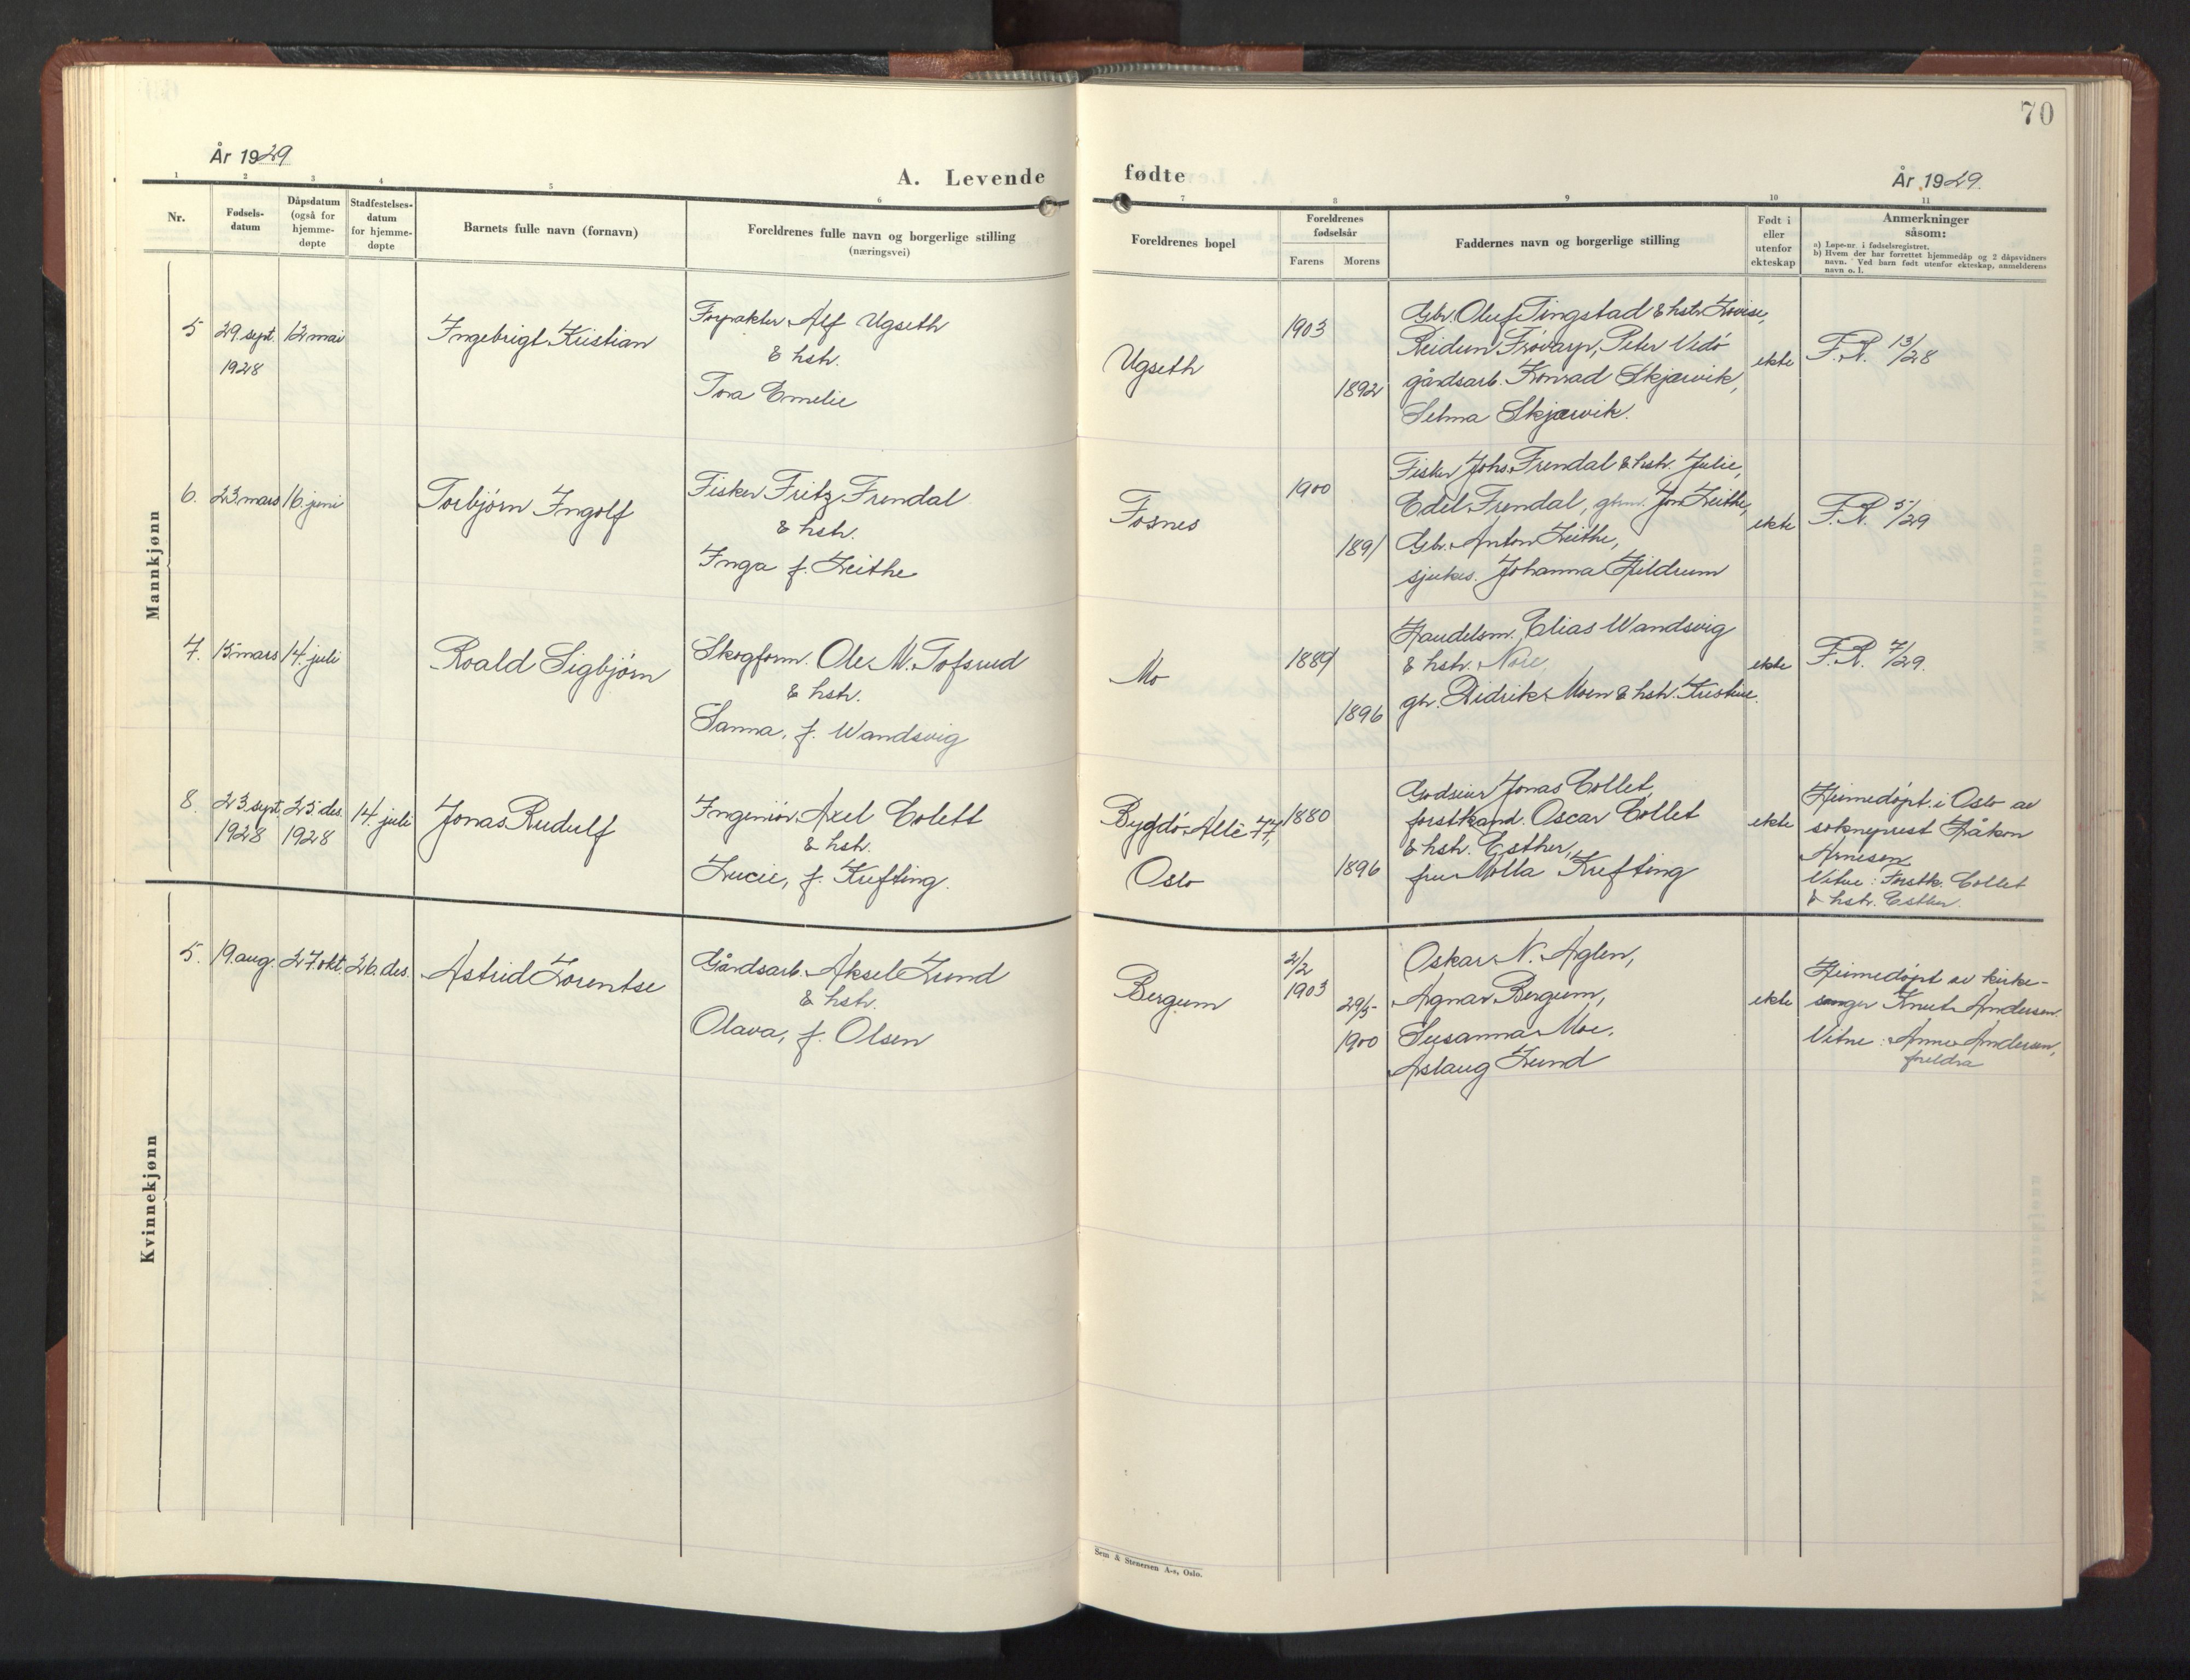 70
År 1929
A. Levende
fødte
År 1929.
1 2 3 4 5 6 7 8 9 10 11
Nr.
Fødsels-
datum
Dåpsdatum
(også for
hjemme-
døpte
Stadfestelses-
datum
for hjemme-
døpte
Barnets fulle navn (fornavn)
Foreldrenes fulle navn og borgerlige stilling
(næringsvei)
Foreldrenes bopel
Foreldrenes
fødselsår
Farens Morens
Faddernes navn og borgerlige stilling
Født i
eller
utenfor
ekteskap
Anmerkninger
såsom:
a) Løpe-nr. i fødselsregistret.
b) Hvem der har forrettet hjemmedåp og 2 dåpsvidners
navn. Ved barn født utenfor ekteskap, anmelderens
navn o. l.
Mannkjønn
5 29. sept. 12 mai
1928
Ingebrigt Kristian
Forpakter Alf Ugseth
& hstr.
Tora Emelie
Ugseth
1903
1892
Gbr. Oluf Tingstad & hstr. Lovise,
Reidun Frøvarp, Peter Vedø
gårdsarb. Konrad Skjærvik,
Selma Skjærvik.
ekte
F. R. 13/28
6. 23. mars 16. juni
Torbjørn Ingolf
Fisker Fritz Frendal
& hstr.
Inga f. Leithe
Fosnes
1900
1891
Fisker Johs. Frendal & hstr. Julie,
Edel Frendal, Jon Leithe,
Gbr. Anton Leithe,
sjukes. Johanna Hildrum
ekte
F. R. 5/29
7. 15. mars 14. juli
Roald Sigbjørn
Skogform. Ole M. Tofsrud
& hstr.
Sanna, f. Wandsvig
Mo
1889
1896
Handelsm. Elias Wandsvig
& hstr.
gbr. Didrik Moen & hstr. Kristine.
ekte
F. R. 7/29.
8. 23. sept. 25. des. 14. juli
1928 1928
Jonas Rudulf
Ingeniør Axel Colett
& hstr.
Lucie, f. Krefting.
Bygdø Allè 77,
Oslo
1880
1896
Godseier Jonas Collet,
forstkand. Oscar Collet
& hstr. Esther,
fru Molla Krefting
ekte
Heimedøpt i Oslo av
sokneprest Håkon
Arnesen
Vitne: Forstk. Collet
& hstr. Esther.
Kvinnekjønn
5. 19. aug. 27. okt. 26. des.
Astrid Lorentse
Gårdsarb. Aksel Lund
& hstr.
Olava, f. Olsen
Bergum
2/2
1903
29/5
1900
Oskar N. Aglen,
Agnar Bergum,
Susanna Moe,
Aslaug Lund
ekte
Heimedøpt av kirke-
sanger Knut Andersen
Vitne: Anne Andersen,
foreldra
Sem & Stenersen A-s, Oslo.